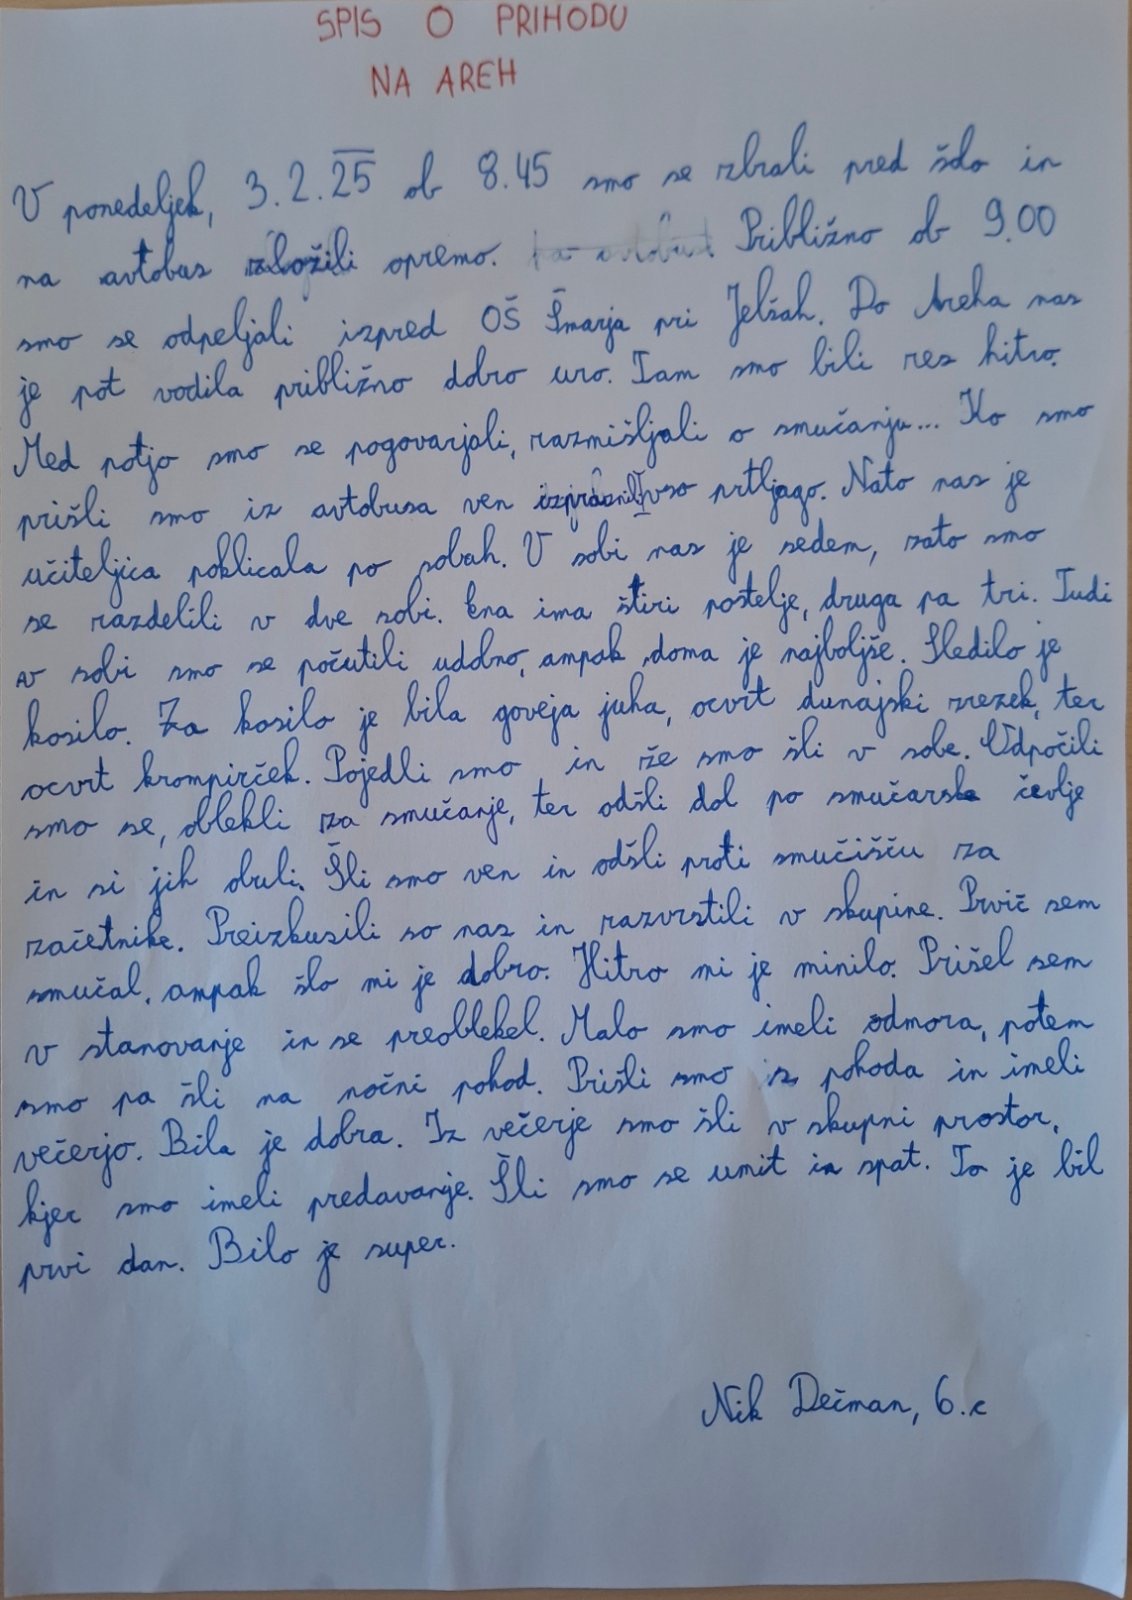 SPIS O PRIHODU
NA AREH
V ponedeljek, 3.2.25 ob 8.45 smo se zbrali pred šolo in
na avtobus zložili opremo. Približno ob 9.00
smo se odpeljali izpred OŠ Šmarja pri Jelšah. Do Areha nas
je pot vodila približno dobro uro. Tam smo bili res hitro.
Med potjo smo se pogovarjali, razmišljali o smučanju... Ko smo
prišli smo iz avtobusa ven izpraznili vso prtljago. Nato nas je
učiteljica poklicala po sobah. V sobi nas je sedem, zato smo
se razdelili v dve sobi. Ena ima štiri postelje, druga pa tri. Tudi
v sobi smo se počutili udobno, ampak doma je najboljše. Sledilo je
kosilo. Za kosilo je bila goveja juha, ocvrt dunajski zrezek, ter
ocvrt krompirček. Pojedli smo in že smo šli v sobe. Odpočili
smo se, oblekli za smučanje, ter odšli dol po smučarske čevlje
in si jih obuli. Šli smo ven in odšli proti smučišču za
začetnike. Preizkusili so nas in razvrstili v skupine. Prvič sem
smučal, ampak šlo mi je dobro. Hitro mi je minilo. Prišel sem
v stanovanje in se preoblekel. Malo smo imeli odmora, potem
smo pa šli na nočni pohod. Prišli smo iz pohoda in imeli
večerjo. Bila je dobra. Iz večerje smo šli v skupni prostor,
kjer smo imeli predavanje. Šli smo se umit in spat. To je bil
prvi dan. Bilo je super.
Nik Dečman, 6.c